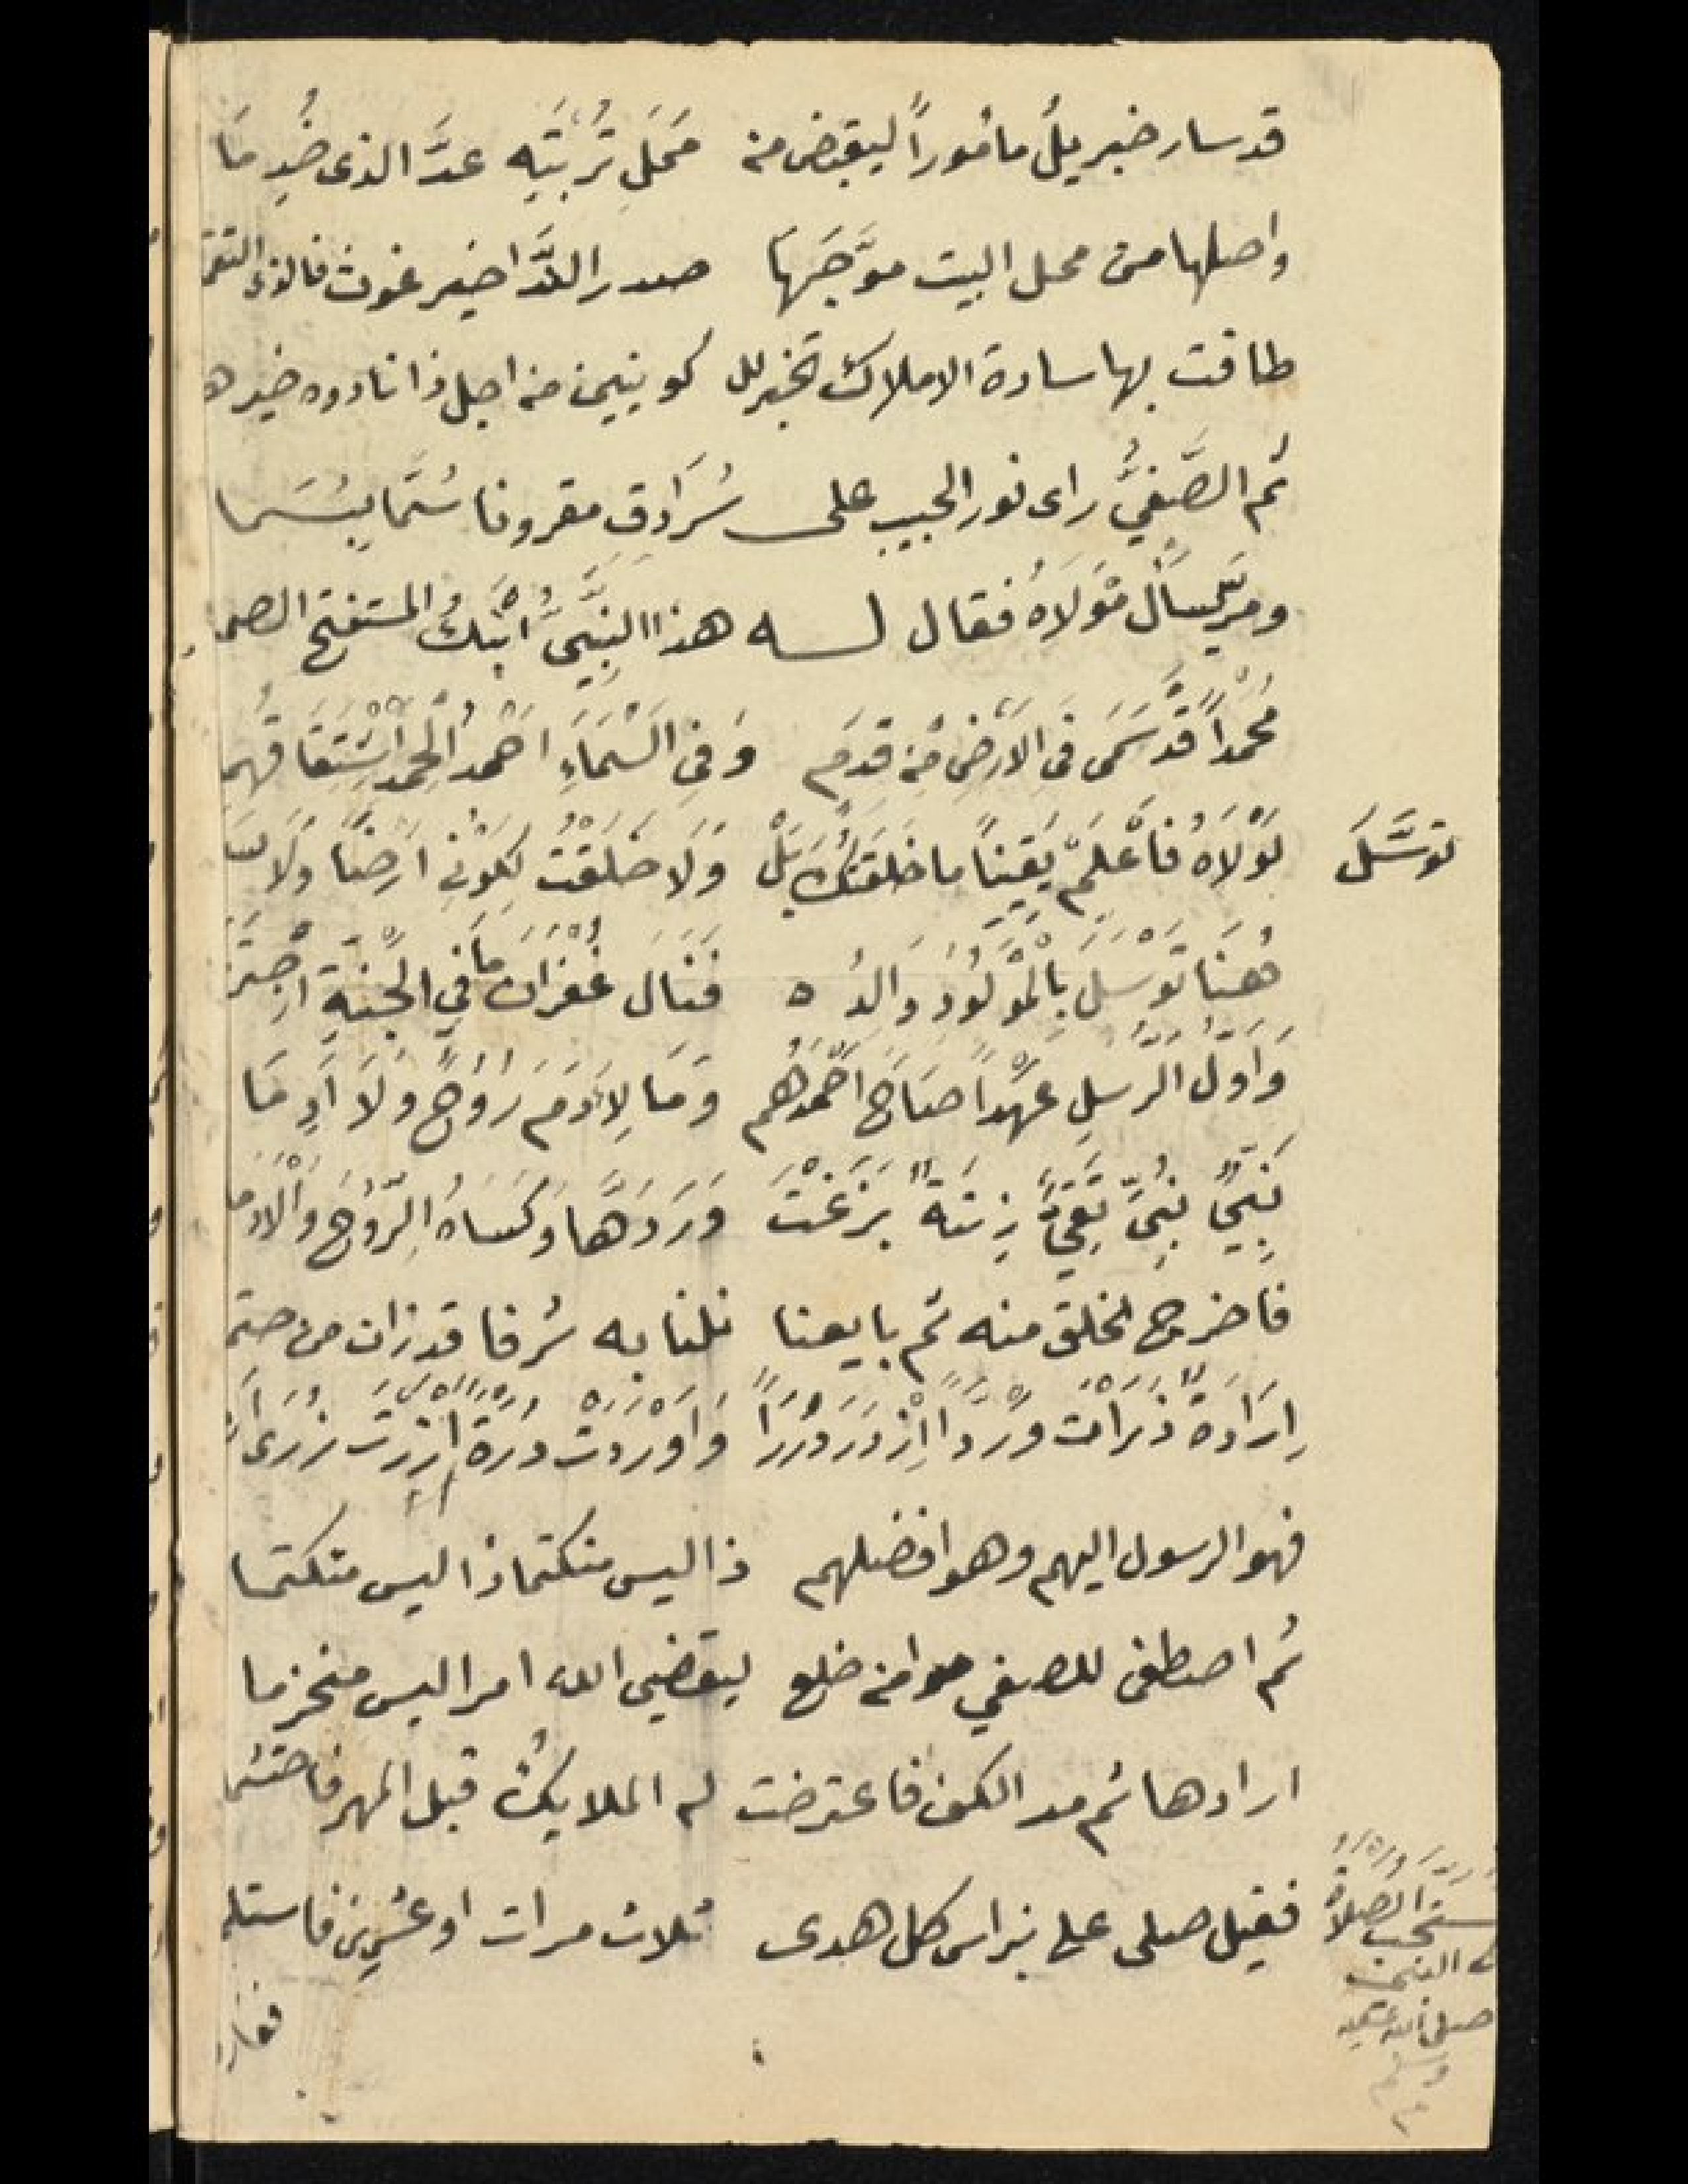 قد سار جبريلُ مامُوراً ليقبض من مَحَلِ تُربَتِه عدَّ الذى خُدِ مَا
واصلها من محل البيت موَّجَهَا صدر اللَّدَا خير غوث
طافت بها سادة الاملاك تخبر لل كونين من اجل ذا نادوه خير
ثم الصَّفيُّ راى نور الحبيب على سُرَادِق مقرونا سُمًا بِسُمَا
ومريسأل مَوْلَاهُ فقال له هذا النبيَّ ابْنُكَ المستفتح
مُحَمداً قَد سَمَى فى الاَرضِ مِن قِدَمٍ وَفِى السَّمَاءِ اَحْمَدُ الحَمدِ
توسَّلَ لَوْلَاهُ فَاعْلَمْ يَقيناً ما خلقتك بَلْ وَلَا خَلَقْتُ لِكَوْنِى اَرضًا وَلَا
هُنَا تَوَسَلَ بِالْمَوْلُوْدِ وَالِدُه فَنَالَ غُفْرَانَ مَا فِي الجَنَّةِ
وَاَوَّلُ الرُّسلِ عَهْداً صَاحَ اَحْمَدُهُم وَمَا لِاَدَمَ رُوْحٌ وَلَا اَدِ مَا
نَبِيٌّ نَبِىٌّ تَقِيٌّ زِنَةً بَزَغَتْ وَرَدَّهَا وَكَسَاهُ الرُّوْحَ وَالْاَدَمَا
فاخرج الخلق منه ثم بايعنا نلنا به شرفا قد زان من
اِرَادَةً وَاَوْرَدَتْ دُرَةً
فهو الرسول اليهم وهو افضلهم ذا ليس منكتما ذا ليس منكتما
ثم اصطفى للصفي حوا من ضلع ليقضى الله امرا ليس منخرما
ارادها ثم مد الكف فاعترضت له الملايكُ قبل المهر فاحتشما
فقيل صلى على نبراس كل هدى ثلاث مرات او عشرين فاستلم
تستحب الصلاة
على النبى
صلى الله عليه
وسلم